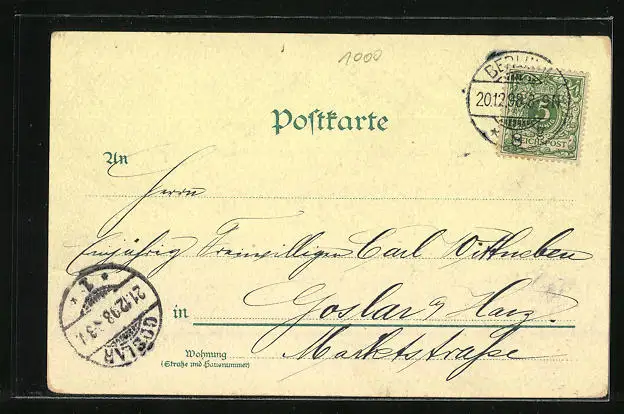 1000
BERLIN
20.12.98.8-9N
5
REICHSPOST
Postkarte
An
Herrn
Einjährig Freiwilligen Carl Wittneben
in Goslar a/ Harz.
Marktstraße
Wohnung
(Straße und Hausnummer)
GOSLAR
21.12.98
1